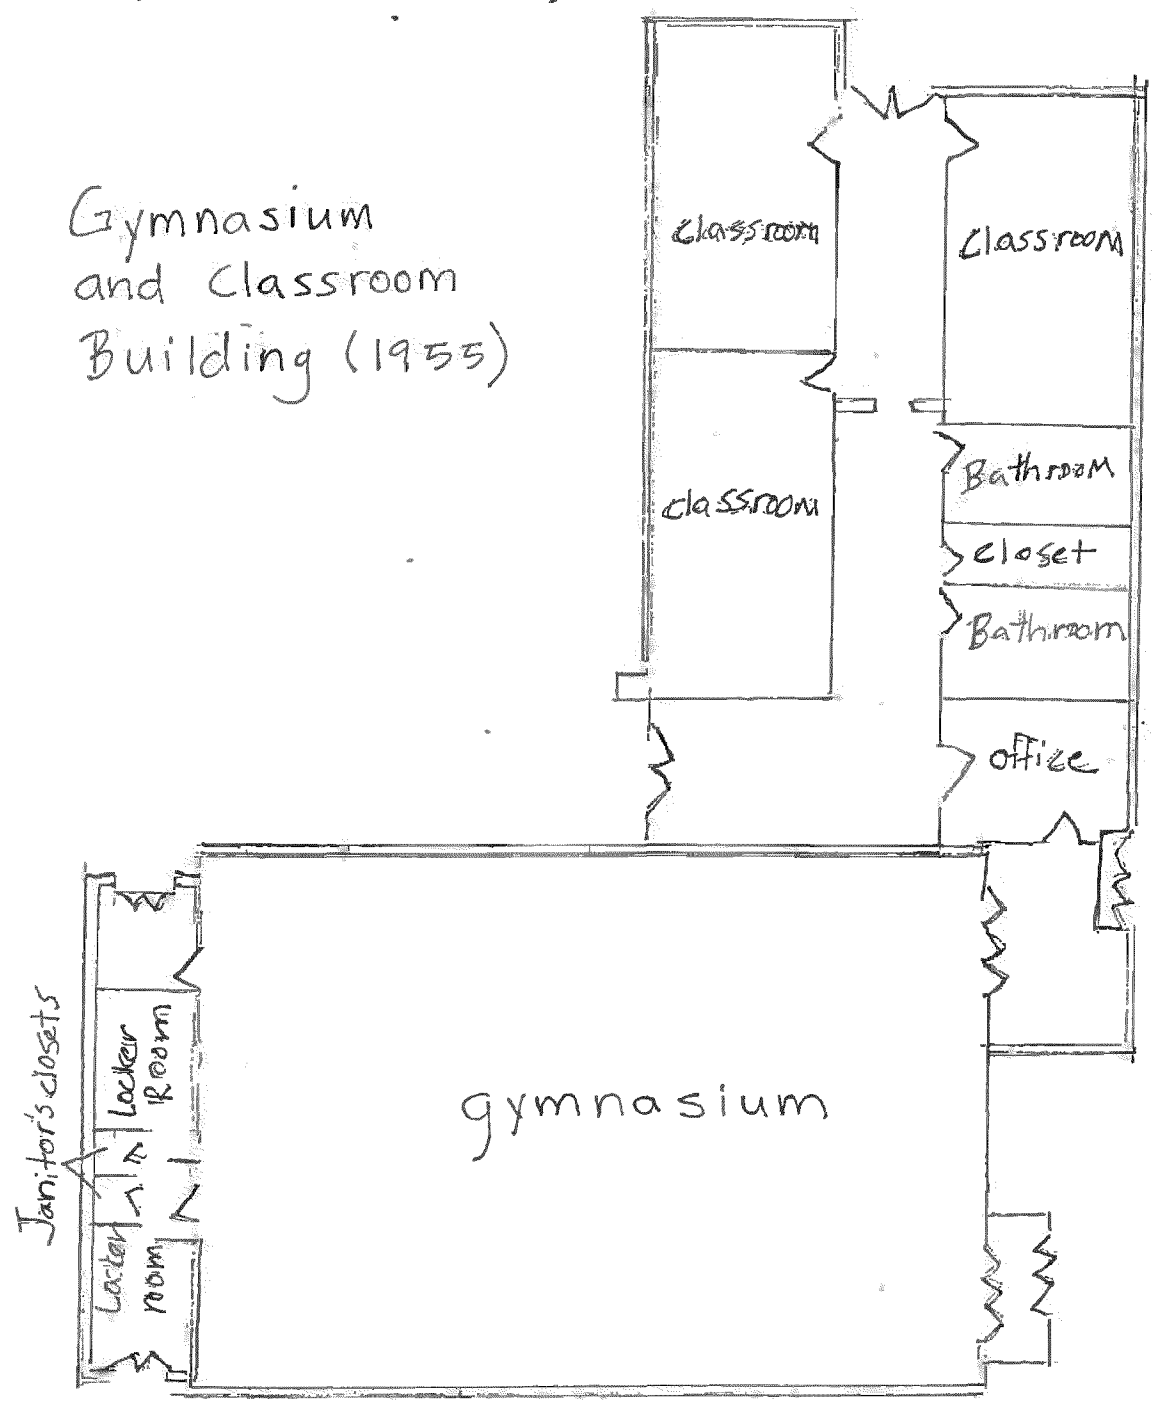 Gymnasium
and Classroom
Building (1955)
classroom
Classroom
classroom
Bathroom
closet
Bathroom
office
gymnasium
Janitor's closets
Locker
Room
Locker
room